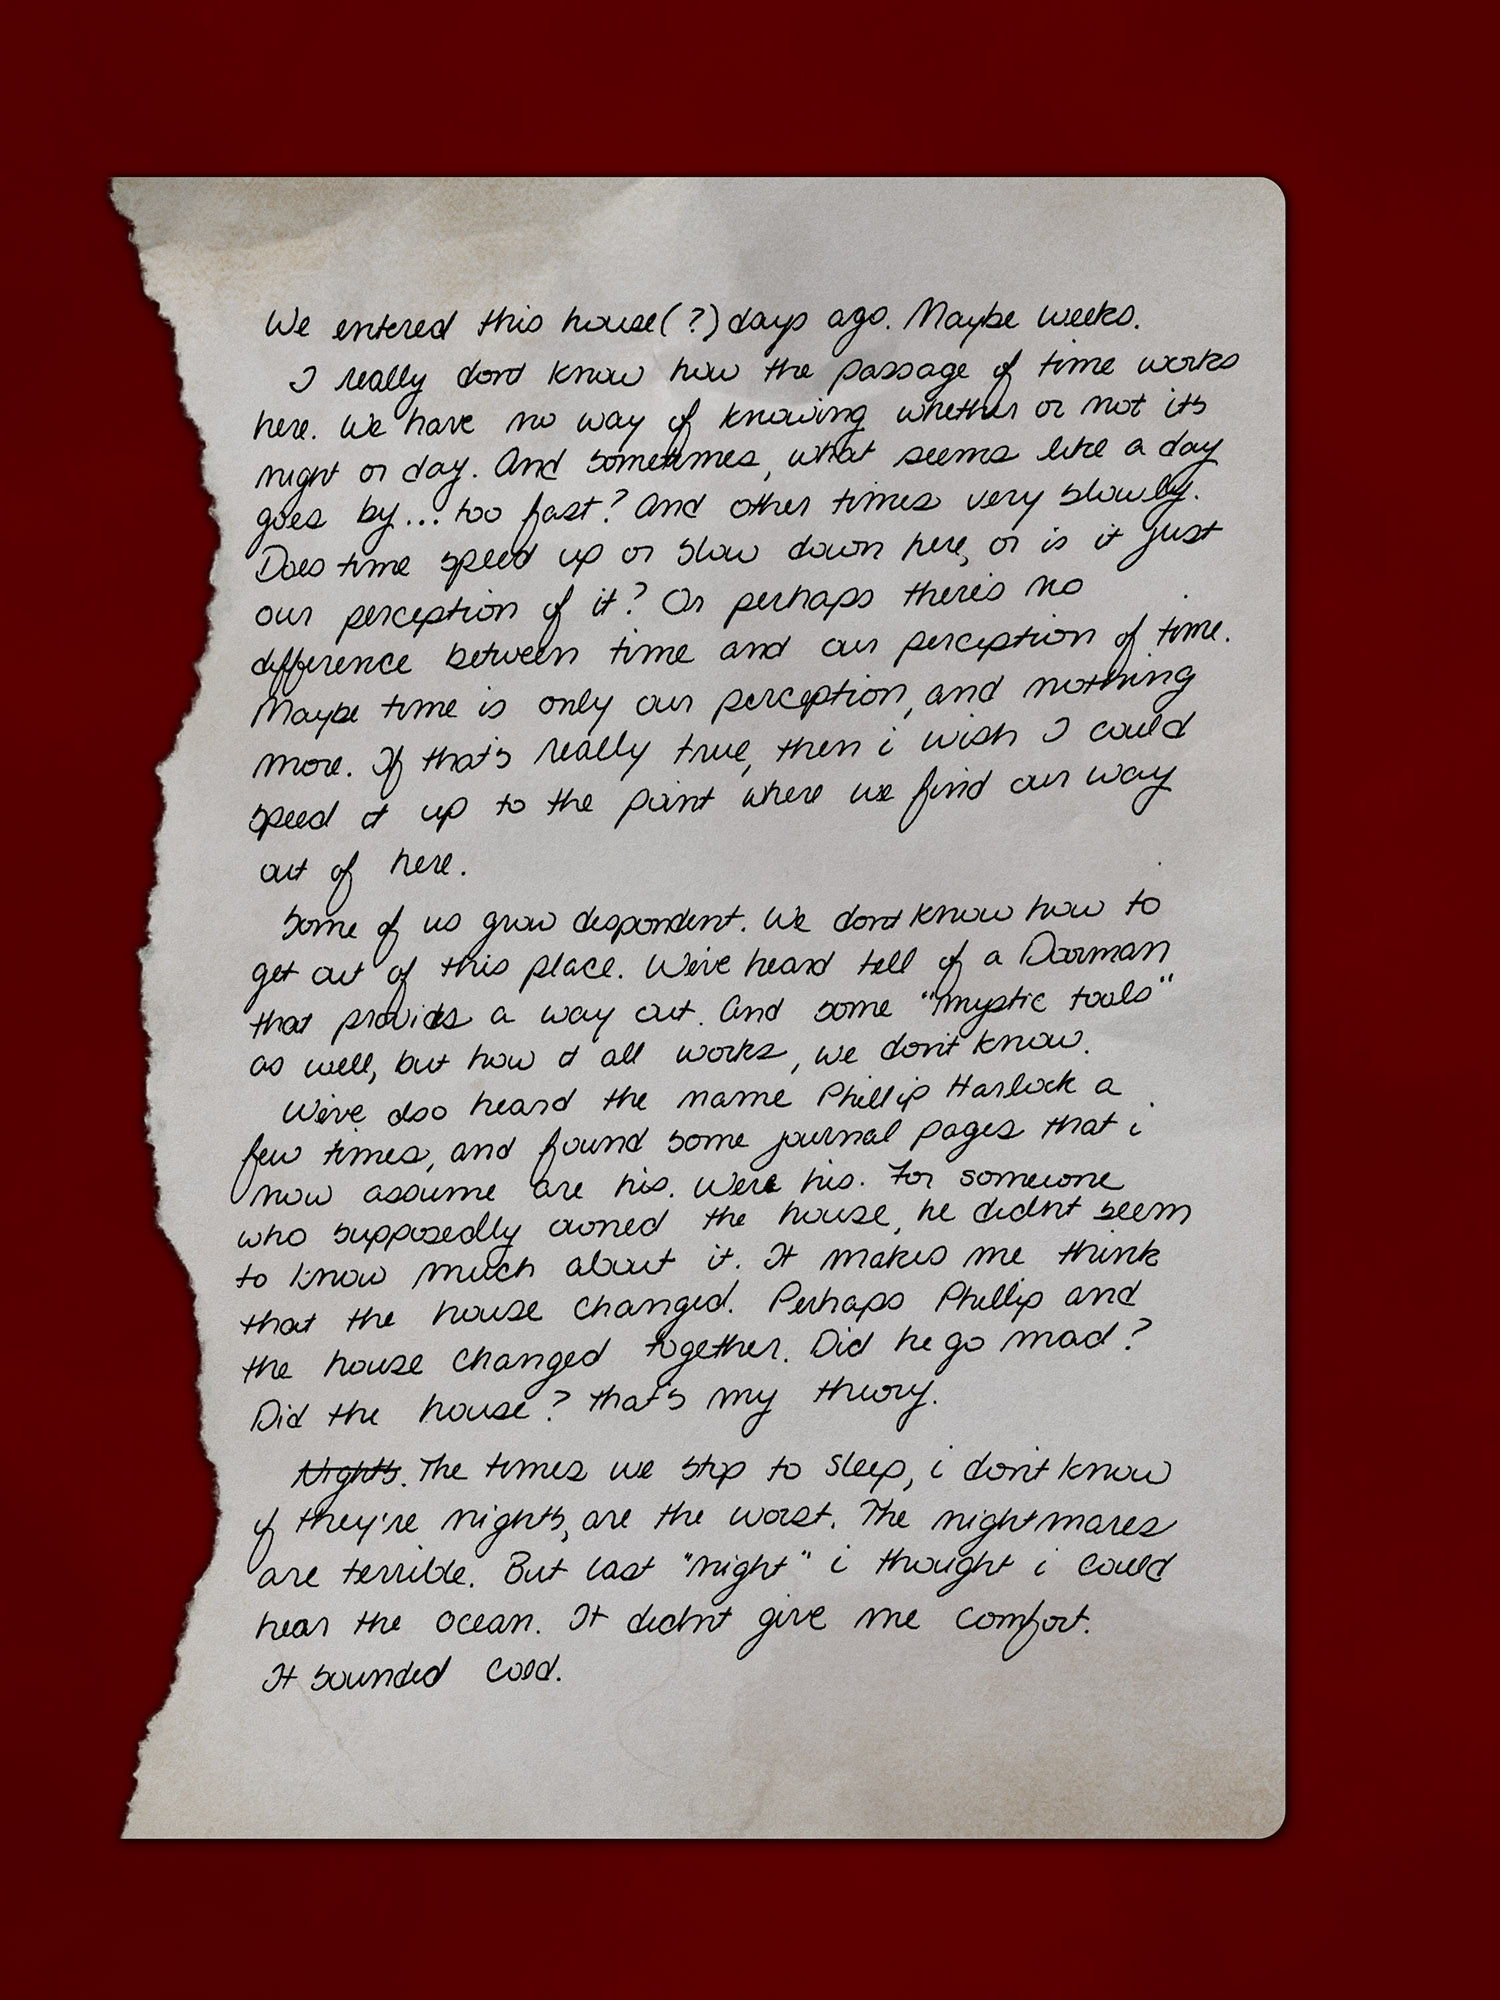 We entered this house(?) days ago. Maybe weeks.
I really dont know how the passage of time works
here. We have no way of knowing whether or not its
night or day. And sometimes, what seems like a day
goes by... too fast? And other times very slowly.
Does time speed up or slow down here, or is it just
our perception of it? Or perhaps there's no
difference between time and our perception of time.
Maybe time is only our perception, and nothing
more. If that's really true, then i wish I could
speed it up to the point where we find our way
out of here.
Some of us grow despondent. We dont know how to
get out of this place. We've heard tell of a Doorman
that provides a way out. And some "mystic tools"
as well, but how it all works, we don't know.
We've also heard the name Phillip Harlock a
few times, and found some journal pages that i
now assume are his. Were his. For someone
who supposedly owned the house, he didn't seem
to know much about it. It makes me think
that the house changed. Perhaps Phillip and
the house changed together. Did he go mad?
Did the house? that's my theory.
Nights. The times we stop to sleep, i don't know
if they're nights, are the worst. The nightmares
are terrible. But last "night" i thought i could
hear the ocean. It didn't give me comfort.
It sounded cold.